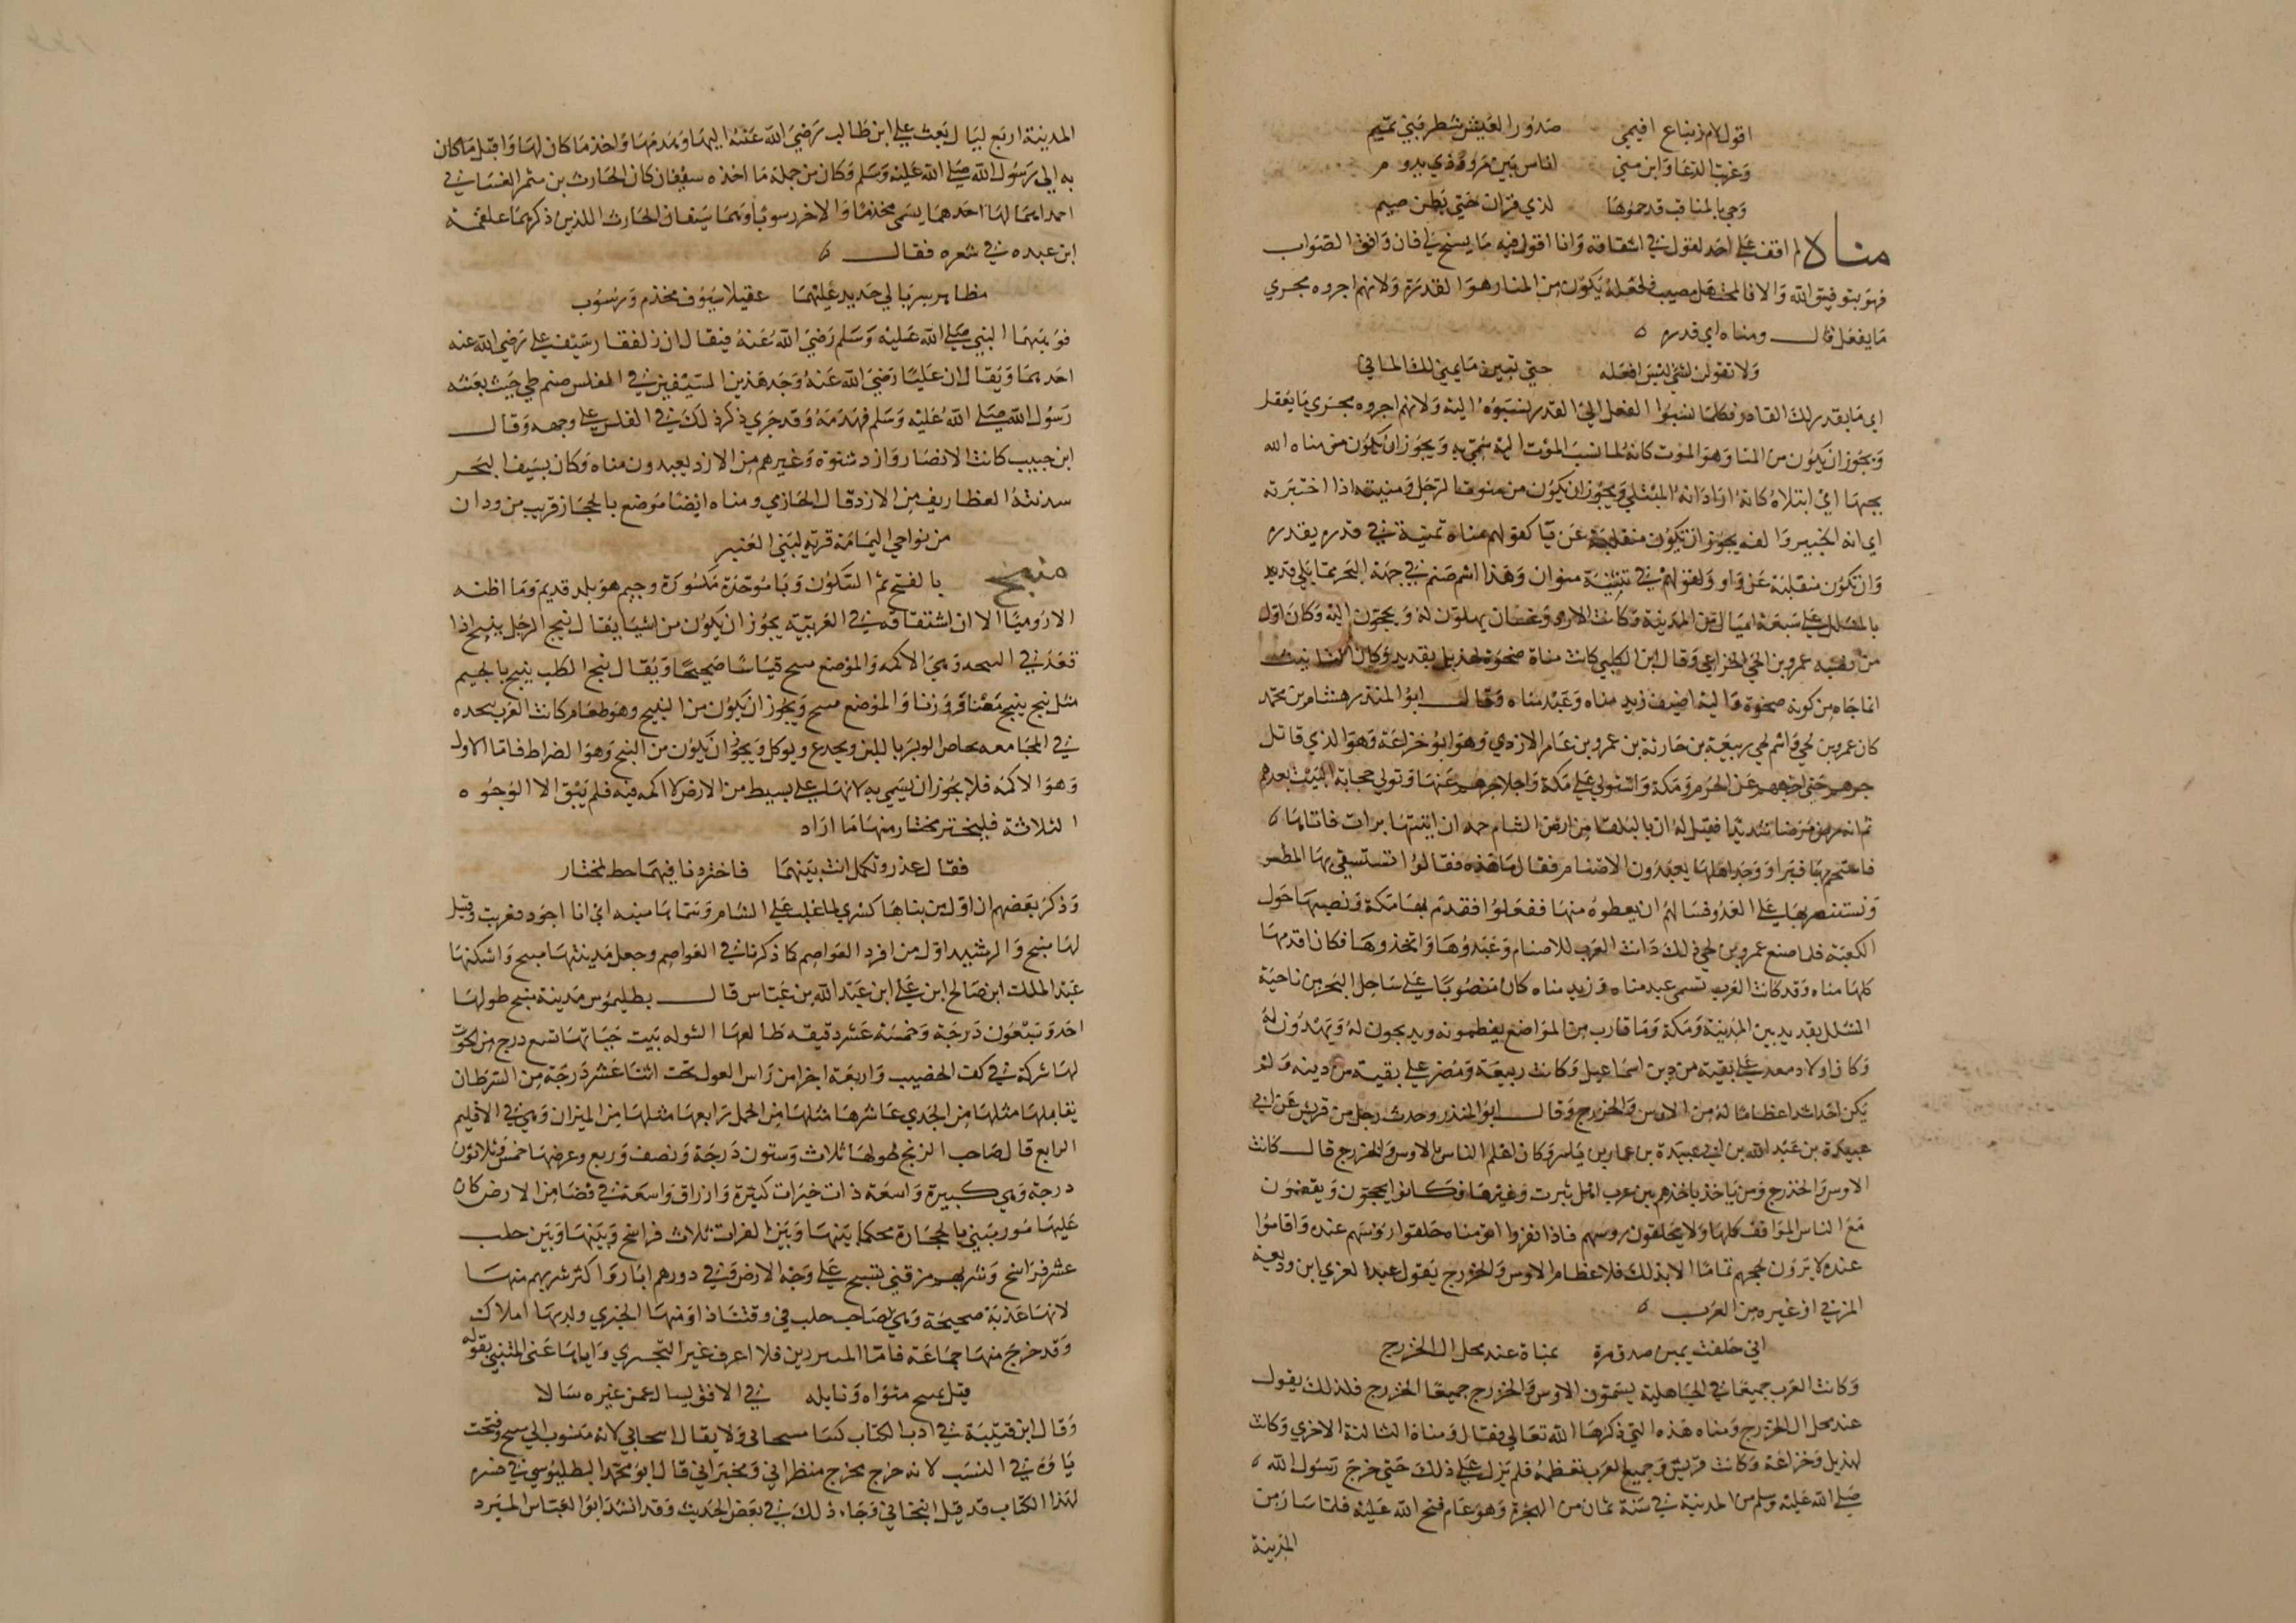 اقول لام زنباع اقيمي صدور العيش شطر بني تميم
وغربت الدعا واين مني اناس بين مر وذي يدوم
وحي بالمناقب قد حموها لذي قران حتى بطن صيم
مناة لم اقف على احد يقول في اشتقاقه وانا اقول فيه ما يسنح لي فان وافق الصواب
فهو بتوفيق الله والا فالمجتهد مصيب فلعله يكون من المنا وهو القدر ولانهم اجروه مجري
ما يفعل قال ومناه اي قدره
ولا تقولن لشي ليس افعله حتى تبين ما يمني لك الماني
اي ما يقدر لك القادر فكلما نسبوا الفعل الى القدر نسبوه اليه ولانهم اجروه مجري ما يعقل
ويجوز ان يكون من المنا وهو الموت كانه لما نسب الموت اليه سمي به ويجوز ان يكون من مناه الله
بحبها اي ابتلاه كانه اراد انه المبتلي ويجوز ان يكون من منوت الرجل ومنيته اذا اختبرته
اي انه الخبير والفه يجوز ان تكون منقلبة عن يا كقولهم مناه يمنيه في قدره يقدره
وان تكون منقلبة عن واو ولقولهم في تثنيته منوان وهذا اسم صنم في جهة البحر مما يلي قديد
بالمشلل على سبعة اميال من المدينة وكانت الازد وغسان يهلون له ويحجون اليه وكان اول
من نصبه عمرو بن لحي الخزاعي وقال ابن الكلبي كانت مناة صخرة لهذيل بقديد وكان التانيث
انما جاه من كونه صخرة واليه اضيف زيد مناه وعبد مناه وقال ابو المنذر هشام بن محمد
كان عمرو بن لحي واسم لحي ربيعة بن حارثة بن عمرو بن عامر الازدي وهو ابو خزاعة وهو الذي قاتل
جرهم حتى اخرجهم عن الحرم ومكة واستولي على مكة واجلا جرهم عنها وتولي حجابة البيت بعدهم
ثم انه مرض مرضا شديدا فقيل له ان بالبلقا من ارض الشام حمه ان اتيتها برات فاتاها
فاستحم بها فبرا ووجد اهلها يعبدون الاصنام فقال ما هذه فقالوا نستسقي بها المطر
ونستنصر بها على العدو فسالهم ان يعطوه منها ففعلوا فقدم بها مكة ونصبها حول
الكعبة فلما صنع عمرو بن لحي ذلك دانت العرب للاصنام وعبدوها واتخذوها فكان اقدمها
كلها مناه وقد كانت العرب تسمي عبد مناه وزيد مناه كان منصوبا على ساحل البحر من ناحية
المشلل بقديد بين المدينة ومكة وما قارب من المواضع يعظمونه ويذبحون له ويهدون له
وكان اولاد معد على بقية من دين اسماعيل وكانت ربيعة ومضر على بقية من دينه ولم
يكن احد اشد اعظاما له من الاوس والخزرج وقال ابو المنذر وحدث رجل من قريش عن ابي
عبيدة بن عبد الله بن ابي عبيدة بن عمار بن ياسر وكان اعلم الناس بالاوس والخزرج قال كانت
الاوس والخزرج ومن ياخذ باخذهم من عرب اهل يثرب وغيرها فكانوا يحجون ويقفون
مع الناس المواقف كلها ولا يحلقون روسهم فاذا نفروا اتو مناه حلقوا روسهم عنده واقاموا
عنده لا يرون لحجهم تماما الا بذلك فلاعظام الاوس والخزرج يقول عبد العزي ابن وديعة
المزني او غيره من العرب
اني حلفت يمين صدق برة بمناة عند محل ال الخزرج
وكانت العرب جميعا في الجاهلية يسمون الاوس والخزرج جميعا الخزرج فلذلك يقول
عند محل ال الخزرج ومناه هذه التي ذكرها الله تعالى فقال ومناة الثالثة الاخري وكانت
لهذيل وخزاعة وكانت قريش وجميع العرب تعظمه فلم يزل على ذلك حتى خرج رسول الله
صلى الله عليه وسلم من المدينة في سنة ثمان من الهجرة وهو عام فتح الله عليه فلما سار من
المدينة
المدينة اربع ليال بعث علي ابن طالب رضي الله عنه اليها وهدمها واخذ ما كان لها واقبل ما كان
به الى رسول الله صلى الله عليه وسلم وكان من جملة ما اخذه سيفان كان الحارث بن شمر الغساني
احداهما لها احدهما يسمى مخذما والاخر رسوبا وهما سيفان الحارث اللذين ذكرهما علقمة
ابن عبده في شعره فقال
مظاهر سربالي حديد عليهما عقيلا سيوف مخذم ورسوب
فوهبهما النبي صلى الله عليه وسلم رضي الله عنه فيقال ان ذلفقار سيف علي رضي الله عنه
احدهما ويقال ان عليا رضي الله عنه وجد هذين السيفين في الفلس صنم طي حيث بعثه
رسول الله صلى الله عليه وسلم فهدمه وقد جري ذكر ذلك في الفلس على وجهه وقال
ابن حبيب كانت الانصار وازد شنوه وغيرهم من الازد يعبدون مناه وكان بسيف البحر
سدنته الغطاريف من الازد قال الحازي ومناه ايضا موضع بالحجاز قريب من ودان
من نواحي اليمامة قرية لبني العنبر
منبج بالفتح ثم السكون وبا موحدة مكسورة وجيم هو بلد قديم وما اظنه
الا روميا الا ان اشتقاقه في العربية يجوز ان يكون من اشيا يقال نبج الرجل ينبج اذا
قعد في النبجه وهي الاكمه والموضع منبج قياسا صحيحا ويقال نبج الكلب ينبج بالجيم
مثل نبح ينبح معنا ووزنا والموضع منبج ويجوز ان يكون من النبيج وهو طعام كانت العرب تتخذه
في المجاعه يخاض الوبر باللبن ويجدع ويوكل ويجوز ان يكون من النبج وهو الضراط فاما الاول
وهو الاكمه فلا يجوز ان يسمي به لانها على بسيط من الارض لا اكمه فيه فلم يبق الا الوجوه
الثلاثة فليختر مختار منها ما اراد
فقال غدر وثكل انت بينهما فاختر وما فيهما حظ لمختار
وذكر بعضهم ان اول من بناها كسري لما غلب على الشام وسماها منبه اي انا اجود فعربت وقيل
لها منبج والرشيد اول من افرد العواصم كما ذكرنا في العواصم وجعل مدينتها منبج واسكنها
عبد الملك ابن صالح ابن علي ابن عبد الله بن عباس قال بطليموس مدينة منبج طولها
احد وسبعون درجة وخمسة عشر دقيقه طالعها الشوله بيت حياتها تسع درج من الحوت
لها شركة في كف الخضيب واربعة اجزا من راس الغول تحت اثنتا عشر درجة من السرطان
يقابلها مثلها من الجدي عاشرها مثلها من الحمل رابعها مثلها من الميزان وهي في الاقليم
الرابع قال صاحب الزيج طولها ثلاث وستون درجة ونصف وربع وعرضها خمس وثلاثون
درجة وهي كبيرة واسعة ذات خيرات كثيرة وارزاق واسعة في فضا من الارض كان
عليها سور مبني بالحجارة محكما بينها وبين الفرات ثلاث فراسخ وبينها وبين حلب
عشر فراسخ وشربهم من قني تسيح على وجه الارض وفي دورهم ابار واكثر شربهم منها
لانها عذبة صحيحة وهي لصاحب حلب في وقتنا ذا ومنها البحتري وله بها املاك
وقد خرج منها جماعة فاما المبرزين فلا اعرف غير البحتري واياها عنى المتنبي بقوله
قيل بمنبج مثواه ونايله في الافق يسال عمن غيره سالا
وقال ابن قتيبة في ادب الكتاب كسا منبجاني ولا يقال انبجاني لانه منسوب الى منبج وفتحت
باوه في النسب لانه خرج مخرج منظراني ومخبراني قال ابو محمد البطليوسي في تفسيره
لهذا الكتاب قد قيل انبجاني وجاء ذلك في بعض الحديث وقد انشد ابو العباس المبرد